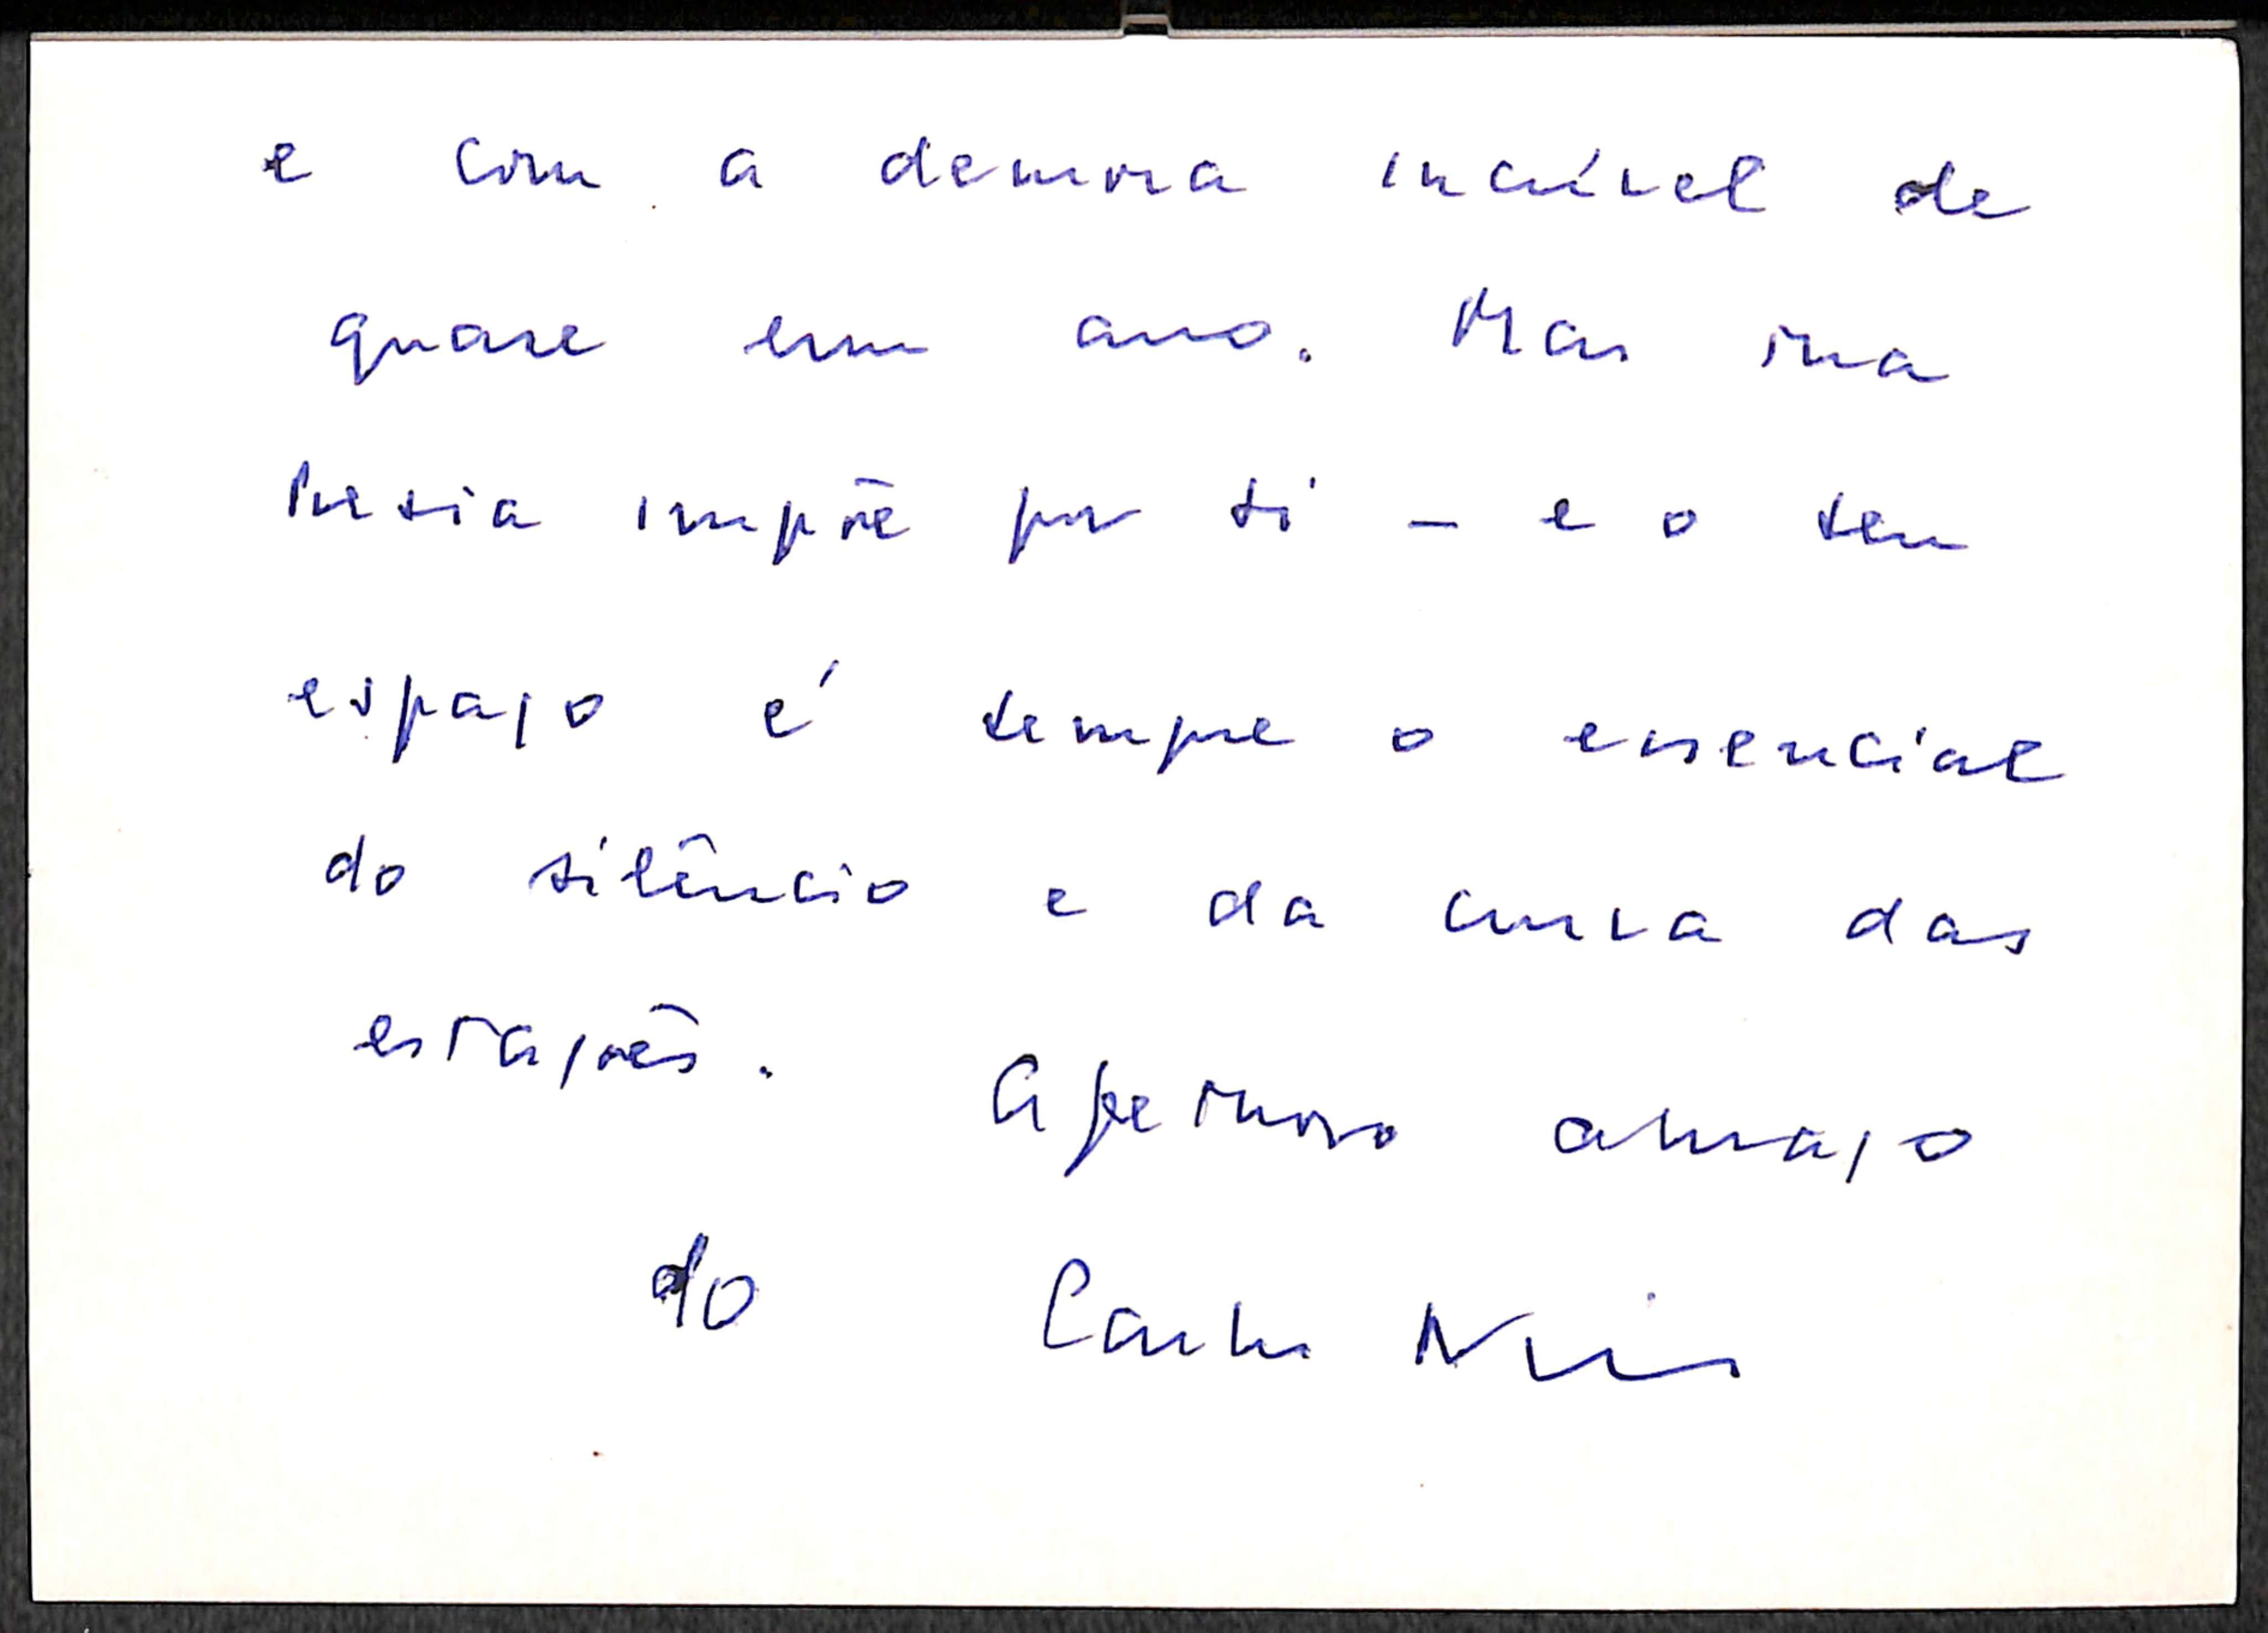 e com a demora incrível de
quase um ano. Mas sua
Poesia impõe por si – e o seu
espaço é sempre o essencial
do silêncio e da curva das
estações. Afetuoso abraço
do Carlos Nejar